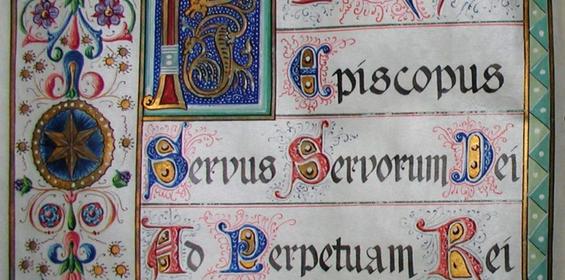 Episcopus
Servus Servorum Dei
Ad Perpetuam Rei